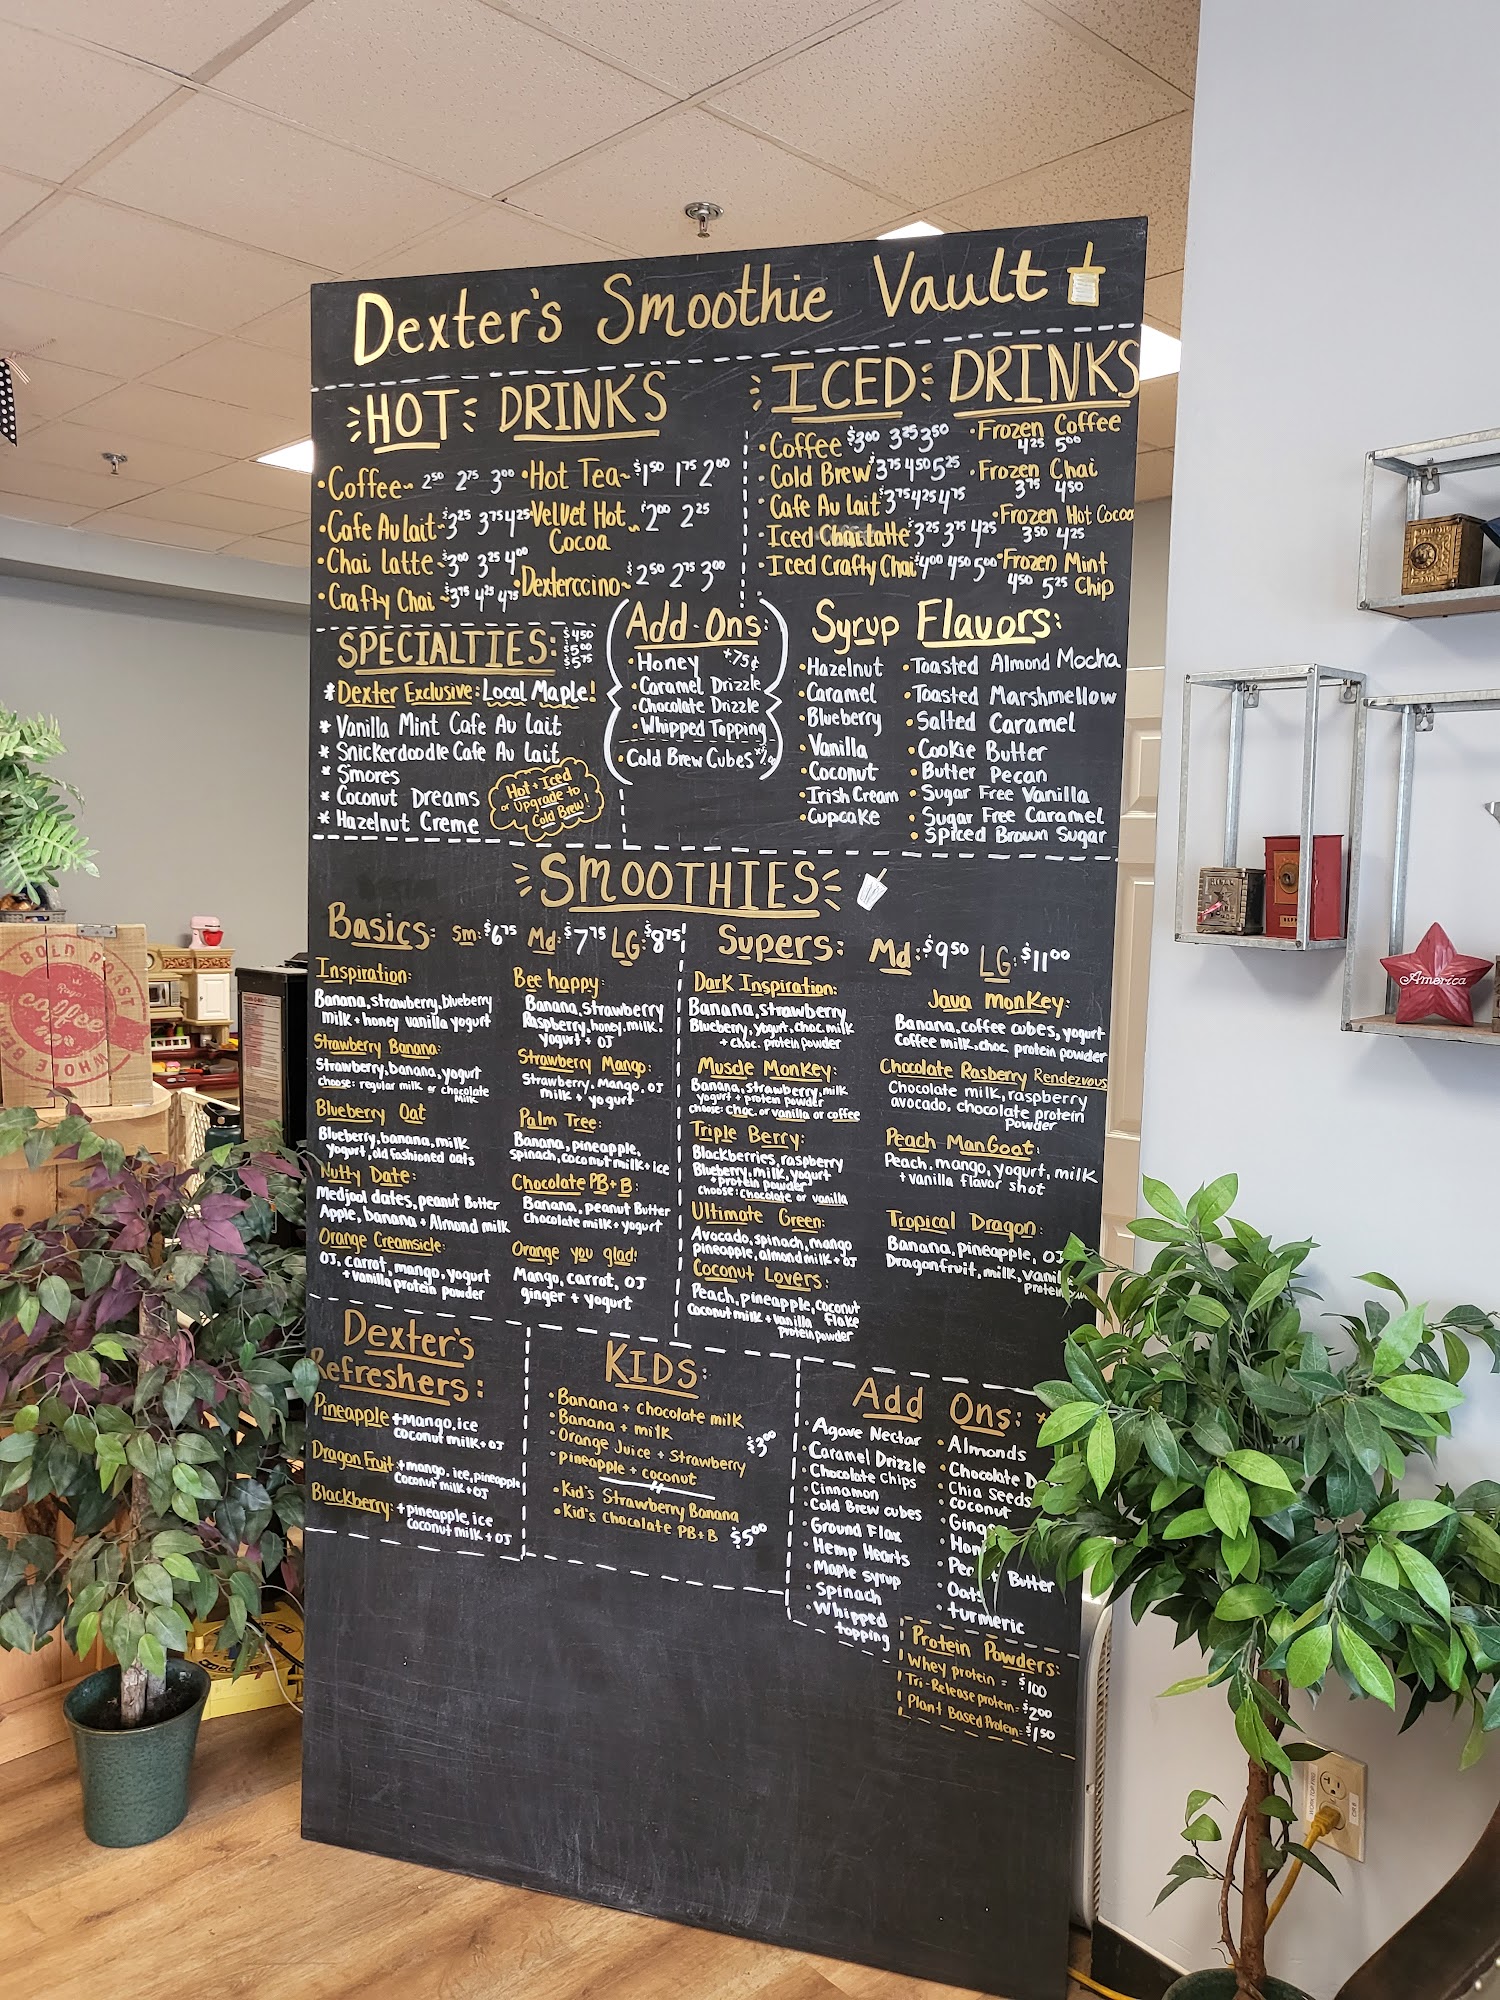 Dexter's Smoothie Vault
HOT DRINKS
• Coffee ~ 2⁵⁰ 2⁷⁵ 3⁰⁰
• Cafe Au lait ~ $3²⁵ 3⁷⁵ 4²⁵
• Chai latte ~ $3⁰⁰ 3²⁵ 4⁰⁰
• Crafty Chai ~ $3⁷⁵ 4²⁵ 4⁷⁵
• Hot Tea ~ $1⁵⁰ 1⁷⁵ 2⁰⁰
• Velvet Hot ~ $2⁰⁰ 2²⁵
Cocoa
• Dexterccino ~ $2⁵⁰ 2⁷⁵ 3⁰⁰
ICED DRINKS
• Coffee $3⁰⁰ 3²⁵ 3⁵⁰
• Cold Brew $3⁷⁵ 4⁵⁰ 5²⁵
• Cafe Au lait $3⁷⁵ 4²⁵ 4⁷⁵
• Iced Chai latte $3²⁵ 3⁷⁵ 4²⁵
• Iced Crafty Chai $4⁰⁰ 4⁵⁰ 5⁰⁰
• Frozen Coffee
4²⁵ 5⁰⁰
• Frozen Chai
3⁷⁵ 4⁵⁰
• Frozen Hot Cocoa
3⁵⁰ 4²⁵
• Frozen Mint
4⁵⁰ 5²⁵ Chip
SPECIALTIES: $4⁵⁰
$5⁰⁰
$5⁷⁵
* Dexter Exclusive: Local Maple!
* Vanilla Mint Cafe Au Lait
* Snickerdoodle Cafe Au Lait
* S'mores
* Coconut Dreams
* Hazelnut Creme
Hot + Iced
or Upgrade to
Cold Brew!
Add-Ons:
• Honey +.75¢
• Caramel Drizzle
• Chocolate Drizzle
• Whipped Topping
• Cold Brew Cubes
Syrup Flavors:
• Hazelnut
• Caramel
• Blueberry
• Vanilla
• Coconut
• Irish Cream
• Cupcake
• Toasted Almond Mocha
• Toasted Marshmellow
• Salted Caramel
• Cookie Butter
• Butter Pecan
• Sugar Free Vanilla
• Sugar Free Caramel
• Spiced Brown Sugar
SMOOTHIES
Basics: Sm: $6⁷⁵ Md: $7⁷⁵ LG: $8⁷⁵
Inspiration:
Banana, strawberry, blueberry
milk + honey vanilla yogurt
Strawberry Banana:
Strawberry, banana, yogurt
choose: regular milk or chocolate
milk
Blueberry Oat
Blueberry, banana, milk
yogurt, old fashioned oats
Nutty Date:
Medjool dates, peanut Butter
Apple, banana + Almond milk
Orange Creamsicle:
OJ, carrot, mango, yogurt
+ vanilla protein powder
Bee happy:
Banana, strawberry
Raspberry, honey, milk,
yogurt + OJ
Strawberry Mango:
Strawberry, Mango, OJ
milk + yogurt
Palm Tree:
Banana, pineapple,
spinach, coconut milk + ice
Chocolate PB+B:
Banana, peanut Butter
chocolate milk + yogurt
Orange you glad!
Mango, carrot, OJ
ginger + yogurt
Supers: Md: $9⁵⁰ LG: $11⁰⁰
Dark Inspiration:
Banana, strawberry
Blueberry, yogurt, choc. milk
+ choc. protein powder
Muscle Monkey:
Banana, strawberry, milk
yogurt + protein powder
choose: choc. or vanilla or coffee
Triple Berry:
Blackberries, raspberry
Blueberry, milk, yogurt
+ protein powder
choose: chocolate or vanilla
Ultimate Green:
Avocado, spinach, mango
pineapple, almond milk + OJ
Coconut Lovers:
Peach, pineapple, coconut
coconut milk + vanilla flake
protein powder
Java monkey:
Banana, coffee cubes, yogurt
Coffee milk, choc. protein powder
Chocolate Rasberry Rendezvous
Chocolate milk, raspberry
avocado, chocolate protein
powder
Peach ManGoat:
Peach, mango, yogurt, milk
+ vanilla flavor shot
Tropical Dragon:
Banana, pineapple, OJ
Dragonfruit, milk,
Dexter's
Refreshers:
Pineapple + mango, ice
coconut milk + OJ
Dragon Fruit + mango, ice, pineapple
coconut milk + OJ
Blackberry: + pineapple, ice
coconut milk + OJ
KIDS:
• Banana + chocolate milk
• Banana + milk
• Orange Juice + Strawberry $3⁰⁰
• pineapple + coconut
• Kid's Strawberry Banana
• Kid's chocolate PB+B $5⁰⁰
Add Ons:
• Agave Nectar
• Caramel Drizzle
• Chocolate Chips
• Cinnamon
• Cold Brew cubes
• Ground Flax
• Hemp Hearts
• Maple syrup
• Spinach
• Whipped
topping
• Almonds
• Chocolate
• Chia Seeds
• Coconut
• Oats
• turmeric
Butter
Protein Powders:
Whey protein = $1⁰⁰
Tri-Release protein = $2⁰⁰
Plant Based Protein = $1⁵⁰
BOLD ROAST
Royal
coffee
WHOLE BEAN
America